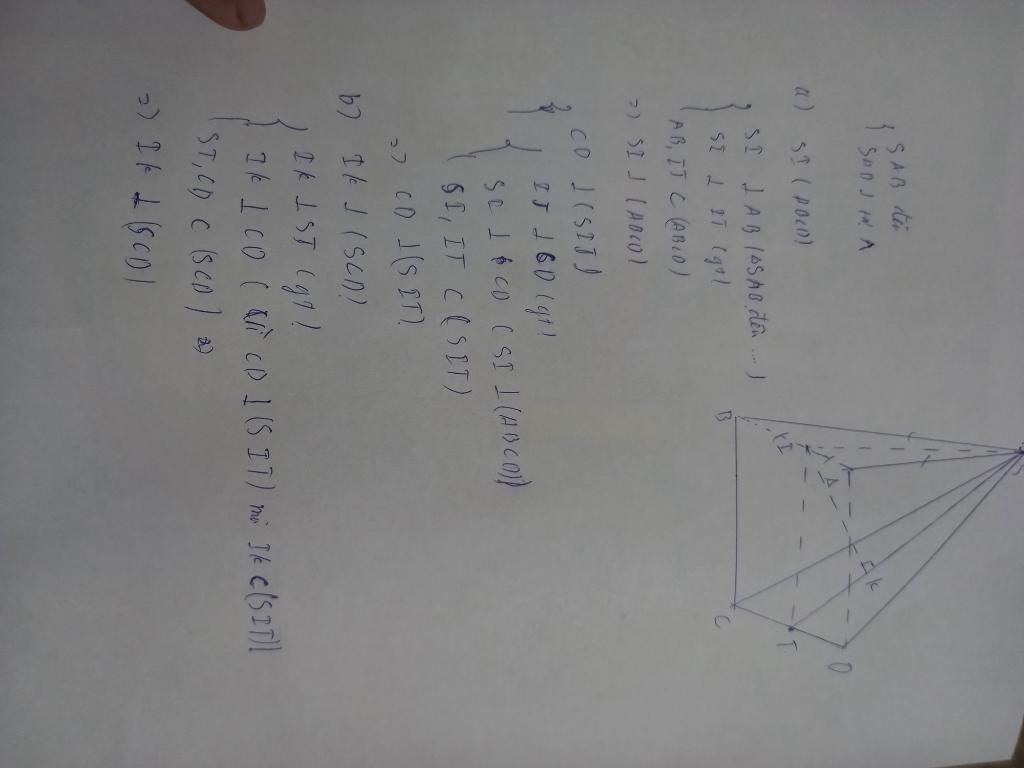 { SAB đều
a) SI ⊥ (ABCD)
{ SI ⊥ AB (ΔSAB đều ...)
SI ⊥ IT (gt)
AB, IT ⊂ (ABCD)
=) SI ⊥ (ABCD)
CD ⊥ (SIT)
{ IT ⊥ CD (gt)
SI ⊥ CD ( SI ⊥ (ABCD))
SI, IT ⊂ (SIT)
=) CD ⊥ (SIT)
b) IK ⊥ (SCD)
{ IK ⊥ ST (gt)
IK ⊥ CD ( vì CD ⊥ (SIT) mà IK ⊂ (SIT))
ST, CD ⊂ (SCD)
=) IK ⊥ (SCD)
S
B
I
A
K
C
T
D